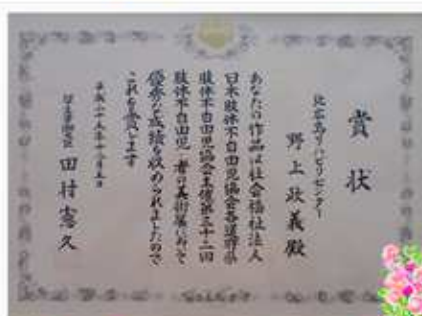 賞状
北広島リハビリセンター
野上政義殿
あなたの作品は社会福祉法人
日本肢体不自由児協会各道府県
肢体不自由児協会主催第三十二回
肢体不自由児・者の美術展において
優秀な成績を収められましたので
これを賞します
平成二十五年十二月五日
厚生労働大臣 田村憲久